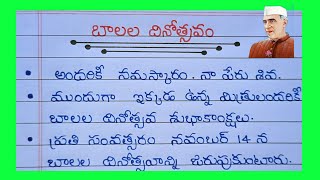 బాలల దినోత్సవం
అందరికీ నమస్కారం. నా పేరు శివ.
ముందుగా ఇక్కడ ఉన్న మిత్రులందరికీ
బాలల దినోత్సవ శుభాకాంక్షలు.
ప్రతి సంవత్సరం నవంబర్ 14 న
బాలల దినోత్సవాన్ని జరుపుకుంటారు.